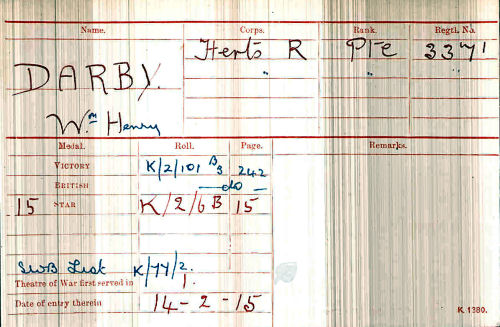 Name. Corps. Rank. Regtl. No.
DARBY. Herts R Pte 3371
" " "
Wm Henry
Medal. Roll. Page. Remarks.
VICTORY K/2/101 B3 242
BRITISH —do—
15 STAR K/2/6B 15
SWB List K/77/2.
Theatre of War first served in 1.
Date of entry therein 14-2-15
K 1380.